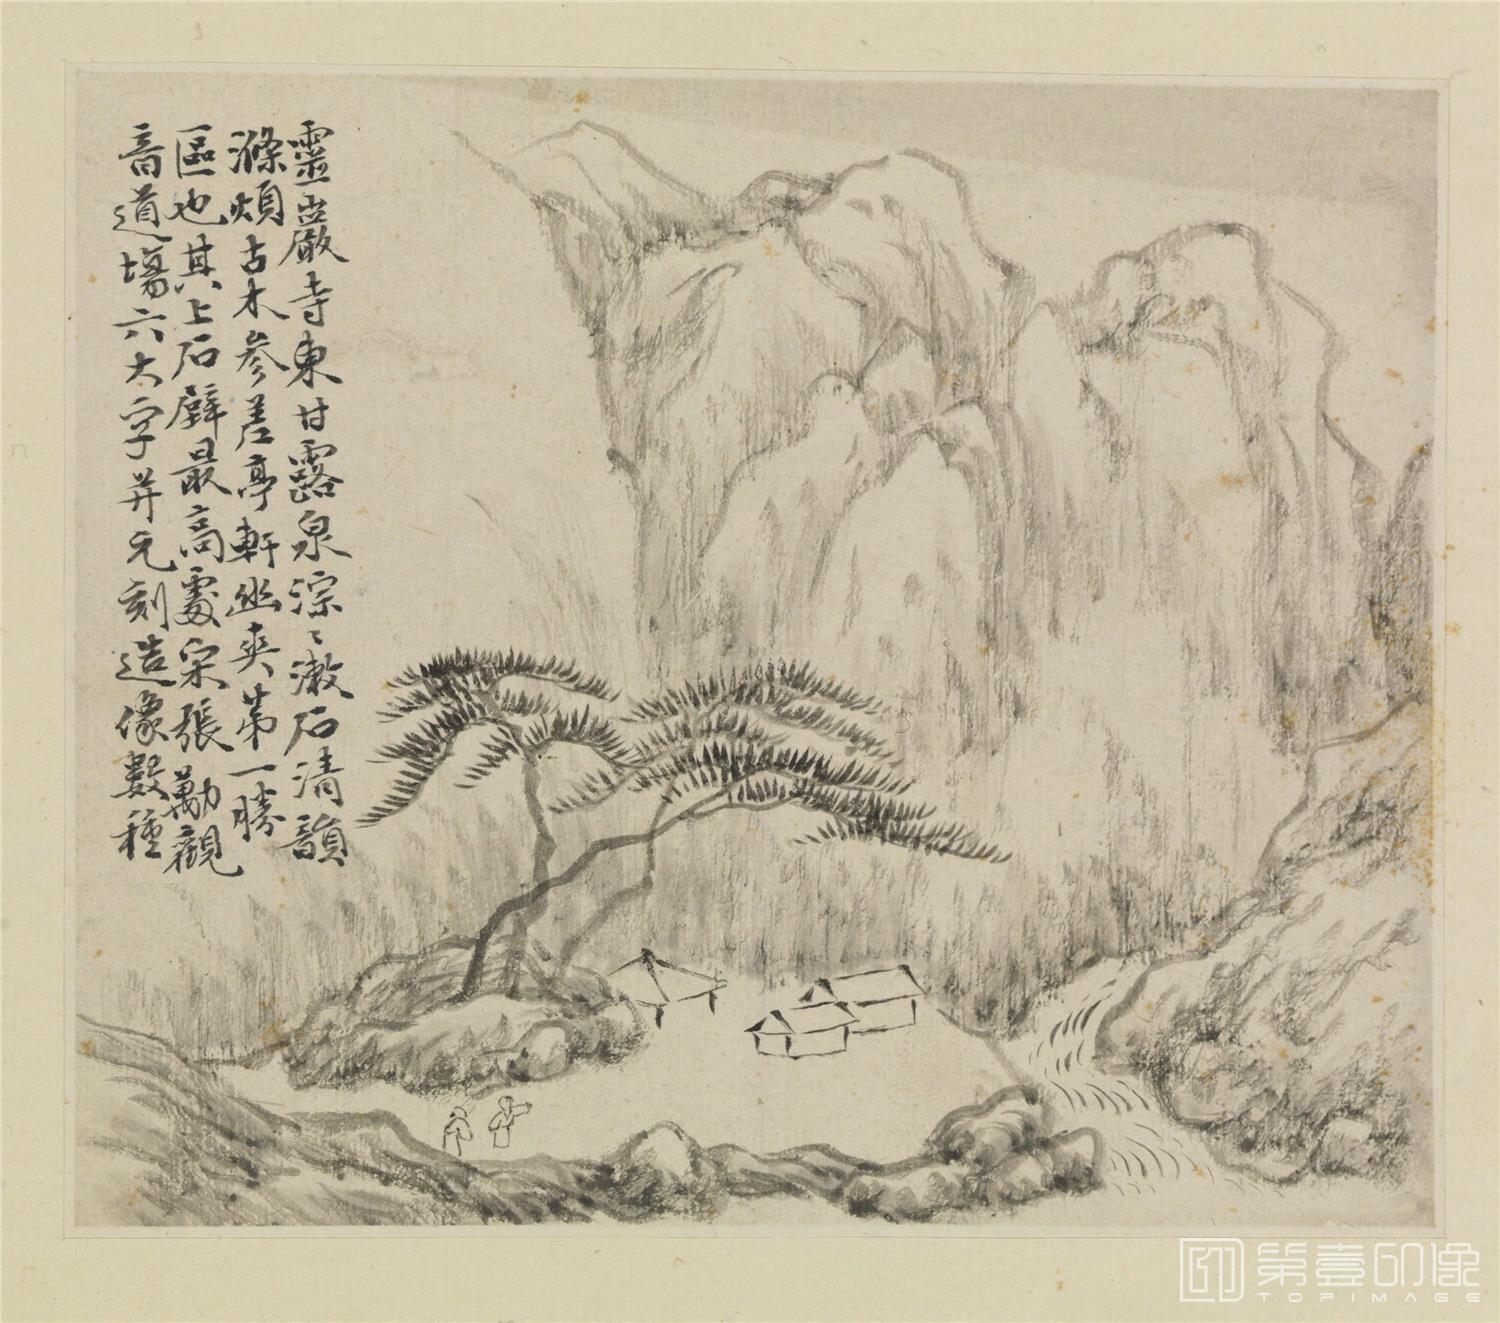 靈巖寺東甘露泉淙〻漱石清韻
滌煩古木參差亭軒幽爽苐一勝
區也其上石壁最高處宋張勱觀
音道場六大字并元刻造像數種
第壹印像
TOPIMAGE